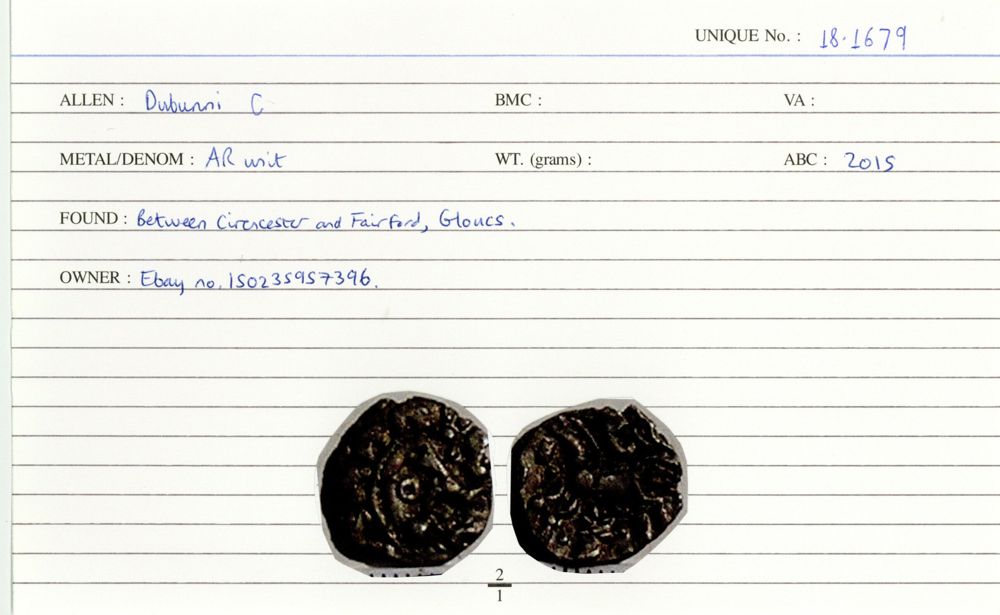 UNIQUE No. : 18.1679
ALLEN : Dubunni C BMC : VA :
METAL/DENOM : AR unit WT. (grams) : ABC : 2015
FOUND : Between Cirencester and Fairford, Gloucs.
OWNER : Ebay no. 150235957396.
2
1